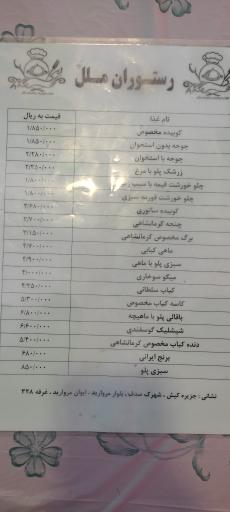 رستوران ملل
نام غذا قیمت به ریال
کوبیده مخصوص ۱/۸۵۰/۰۰۰
جوجه بدون استخوان ۱/۸۵۰/۰۰۰
جوجه با استخوان ۲/۲۸۰/۰۰۰
زرشک پلو با مرغ
چلو خورشت قیمه با سیب
چلو خورشت قورمه سبزی ۱/۸۰۰/۰۰۰
کوبیده ساتوری
چنجه کرمانشاهی
برگ مخصوص کرمانشاهی
ماهی کبابی
سبزی پلو با ماهی
میگو سوخاری
کباب سلطانی
کاسه کباب مخصوص ۵/۳۰۰/۰۰۰
باقالی پلو با ماهیچه ۶/۸۰۰/۰۰۰
شیشلیک گوسفندی ۶/۶۰۰/۰۰۰
دنده کباب مخصوص کرمانشاهی ۵/۴۰۰/۰۰۰
برنج ایرانی ۶۸۰/۰۰۰
سبزی پلو ۸۵۰/۰۰۰
نشانی : جزیره کیش ، شهرک صدف، بلوار مروارید ، ایوان مروارید ، غرفه ۲۲۸